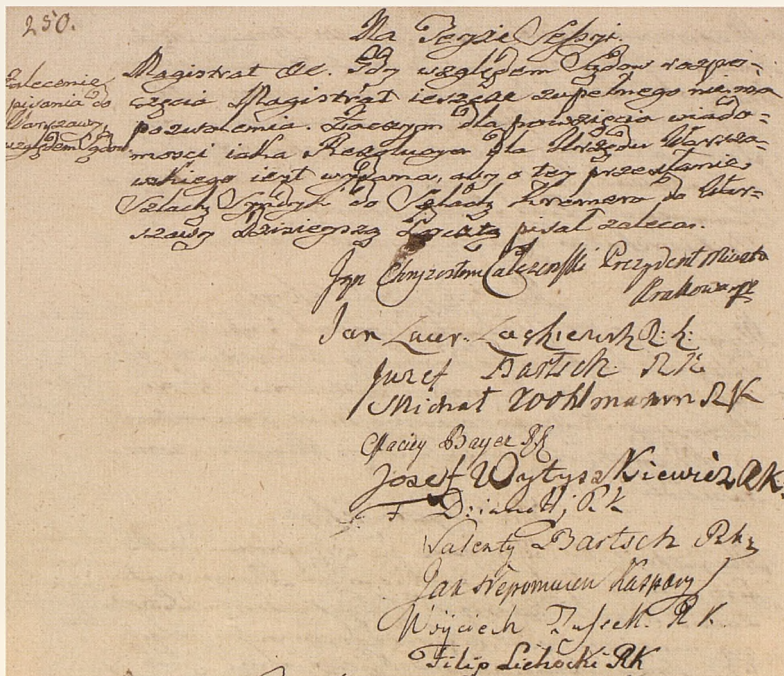 250.
Na Teyże Sessyi.
Zalecenie
pisania do
Warszawy
względem Sądow.
Magistrat &c. Gdy względem Sądow rozpo-
częcia Magistrat ieszcze zupełnego nie ma
pozwolenia. Zaczym dla powzięcia wiado-
mosci iaka Rezolucya dla Urzędu Warsza-
wskiego iest wydana, aby o tey przesłanie
Szlach: Syndyk do Szlach: Kremera do War-
szawy dzisieyszą pocztą pisał zaleca.
Chryzostom Prezydent Miasta
Krakowa
Jan Laur. Laskiewicz R. k.
Jozef Bartsch R K
Michał Wohlmann R K
Maciey Bayer R K
Josef Wytyszkiewicz R K.
F Dzianott, R k
Walenty Bartsch R k
Jan Nepomucen Kaspary
Woyciech R K.
Filip Lichocki R K